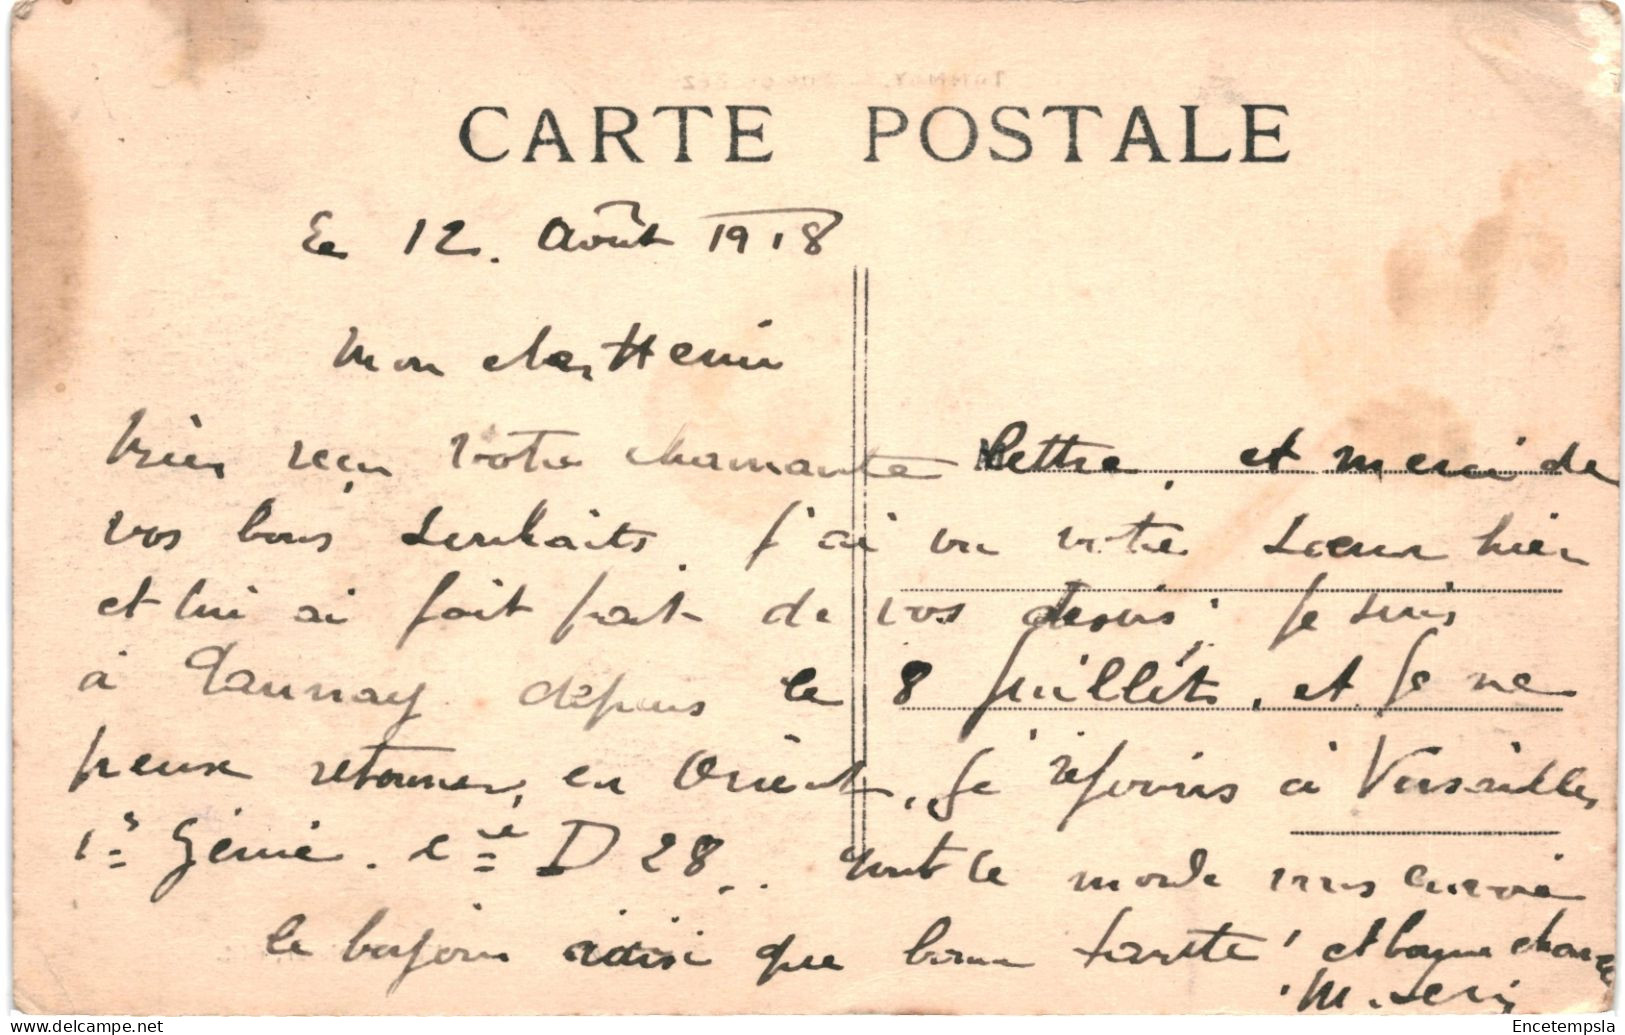 CARTE POSTALE
Le 12. Août 1918
Mon cher Henri
bien reçu votre charmante lettre, et merci de
vos bons souhaits. J'ai vu votre sœur hier
et lui ai fait part de vos desirs; Je suis
à Tannay depuis le 8 Juillet, et Je ne
peux retourner, en Orient, Je rejoins à Versailles
1er Génie. Cie D 28.. tout le monde vous envoie
le bonjour ainsi que bonne santé! et bonne chance
M.
Encetempsla